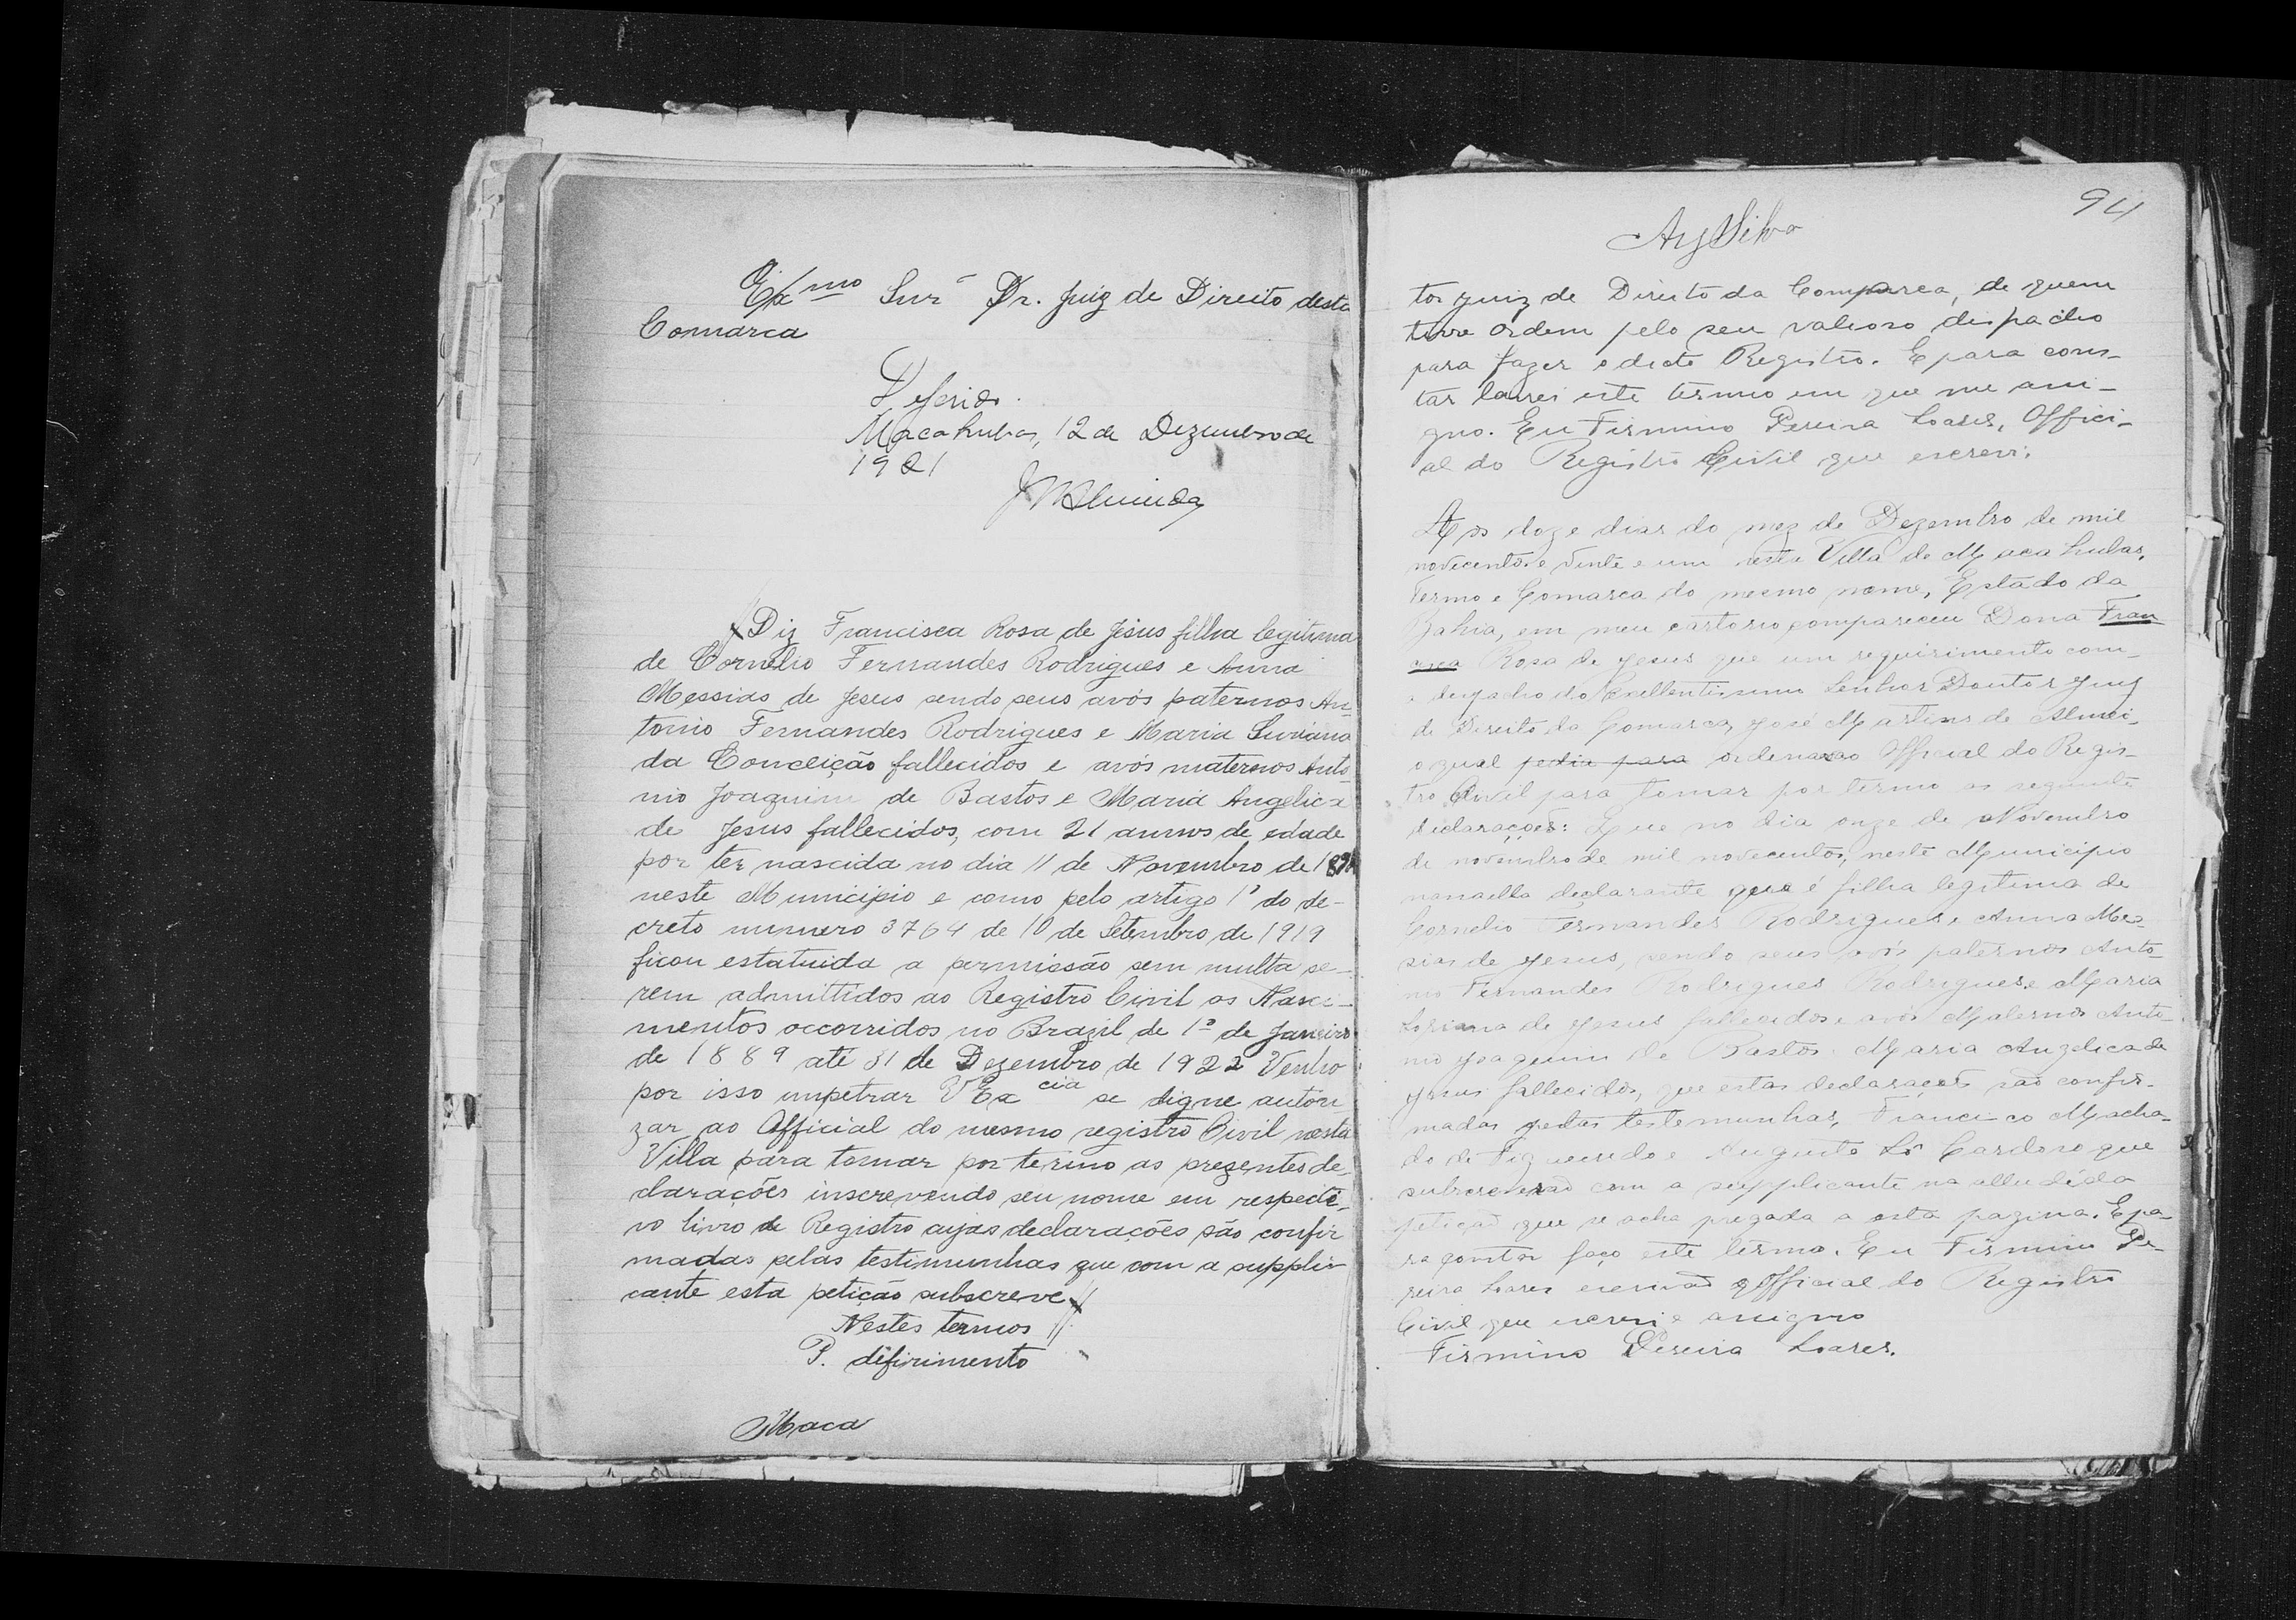 Exmo Snr Dr. Juiz de Direito desta
Comarca
Deferido.
Macahubas, 12 de Dezembro de
1921
JMAlmeida
Diz Francisca Rosa de Jesus filha legitima
de Cornelio Fernandes Rodrigues e Anna
Messias de Jesus sendo seus avós paternos An-
tonio Fernandes Rodrigues e Maria
da Conceição fallecidos e avós maternos Anto-
nio Joaquim de Bastos e Maria Angelica
de Jesus fallecidos, com 21 annos de edade
por ter nascida no dia 11 de Novembro de
neste Municipio e como pelo artigo 1º do de-
creto numero 3764 de 10 de Setembro de 1919
ficou estatuida a permissão sem multa se-
rem admittidos ao Registro Civil os Nasci-
mentos occorridos no Brazil de 1º de Janeiro
de 1889 até 31 de Dezembro de 1922 Venho
por isso impetrar VExcia se digne autori-
zar ao Official do mesmo registro Civil nesta
Villa para tomar por termo as prezentes de-
clarações inscrevendo seu nome em respecti-
vo livro de Registro cujas declarações são confir
madas pelas testimunhas que com a suppli-
cante esta petição subscreve
Nestes termos
P. difirimento
Maca
94
AySilva
tor Juiz de Direito da Comparca, de quem
tive ordem pelo seu valioso dispacho
para fazer o dicto Registro. E para cons-
tar lavrei este termo em que me assi-
gno. Eu Firmino Pereira Soares, Offici-
al do Registro Civil que escrevi.
Aos doze dias do mez de Dezembro de mil
novecentos e vinte e um nesta Villa de Macahubas,
Termo e Comarca do mesmo nome, Estado da
Bahia, em meu cartorio compareceu Dona Fran
cisca Rosa de Jesus que um requirimento com-
o despacho do Excellentissimo Senhor Doutor Juiz
de Direito da Comarca, José Martins de Almei-
o qual pedia para ordenar ao Official do Regis-
tro Civil para tomar por termo as seguinte
declarações: Que no dia onze de Novembro
de novembro de mil novecentos, neste Municipio
declarante que é filha legitima de
Cornelio Fernandes Rodrigues e Anna Mes-
sias de Jesus, sendo seus avós paternos Anto-
nio Fernandes Rodrigues Rodrigues e Maria
de Jesus fallecidos e avós Maternos Anto-
nio Joaquim de Bastos e Maria Angelica de
Jesus fallecidos, que estas declarações são confir-
madas pelas testemunhas, Francisco Macha-
do de Figueredo e Augusto Sá Cardoso que
subscreverão com a supplicante na alludida
petição que se acha pregada a esta pagina. E pa-
ra constar faço este termo. Eu Firmino Pe-
reira Soares escrivão e Official do Registro
Civil que escrevi e assigno
Firmino Pereira Soares.